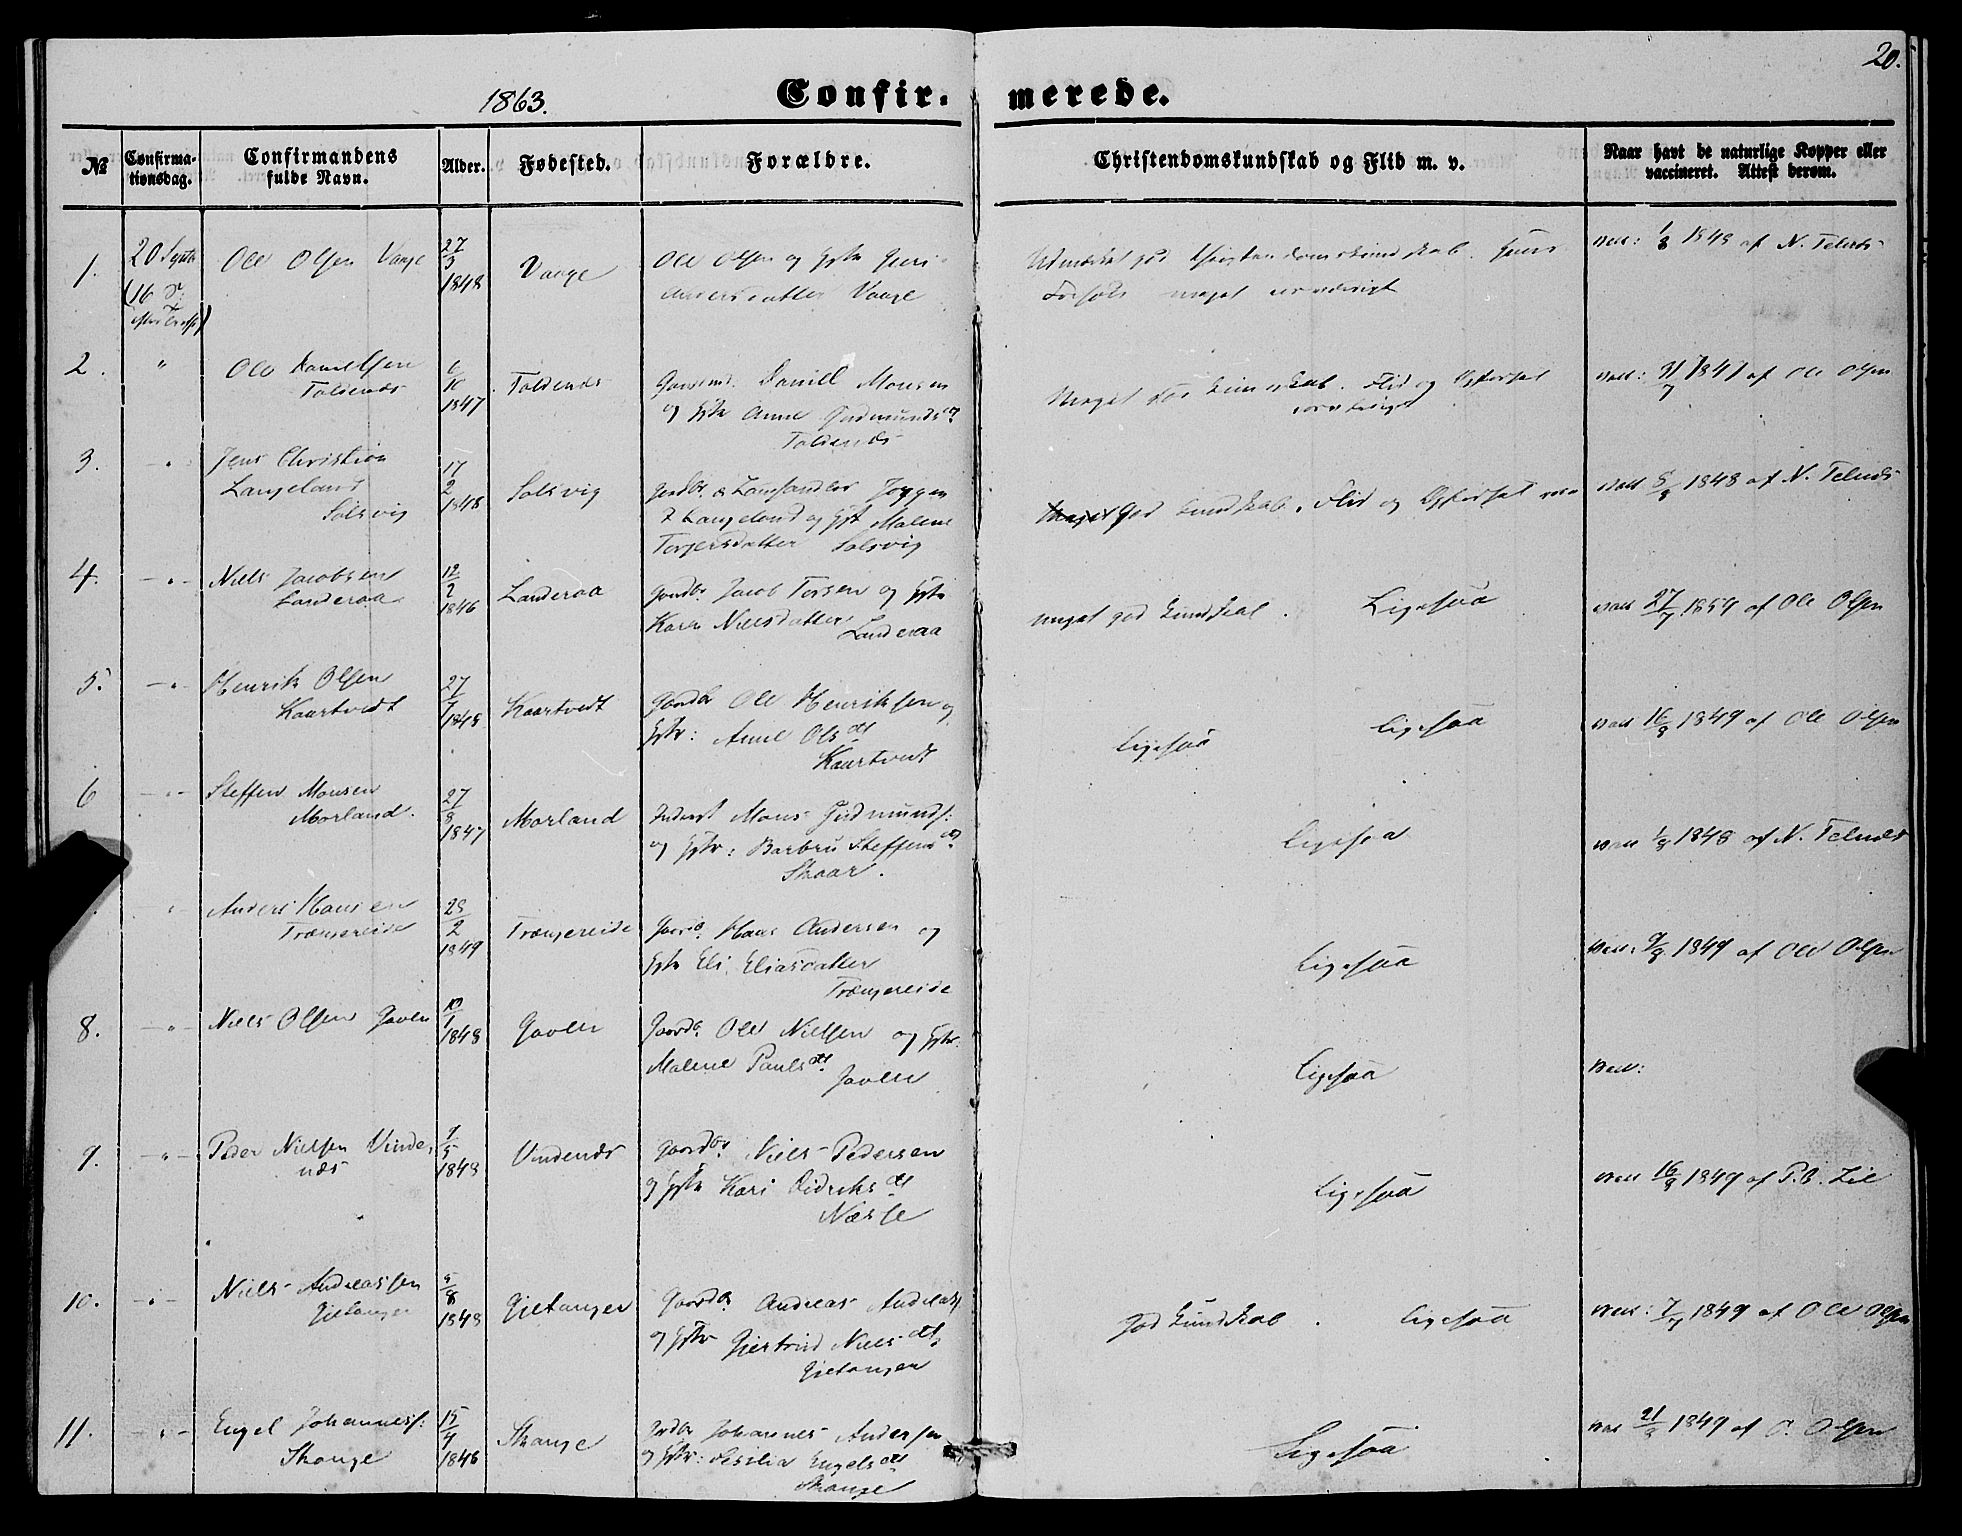 20.
1863. Confir- merede.
№ Confirma-tionsdag. Confirmandens fulde Navn. Alder. Fødested. Forældre. Christendomskundskab og Flid m. v. Naar havt de naturlige Kopper eller vaccineret. Attest derom.
1. 20 Septr Ole Olsen Vaage 27/3 1848 Vaage Ole Olsen og Hstr Guri Andersdatter Vaage
Udmærket god Christendomskundskab.
meget
vacc: 1/8 1848 af N. Telnæs
2. " Ole Danielsen Toldenæs 6/10 1847 Toldenæs Daniel Monsen og Hstr Anne Gudmundsdt Toldenæs
Meget god Kundskab. Flid og Opførsel
vacc: 7 1847 af Ole Olsen
3. - " - Jens Christian Langeland Solsvig 17/2 1848 Solsvig Langeland og Hstr Malene Torgersdatter Solsvig
Meget god Kundskab. Flid og Opførsel
vacc 8 1848 af N. Telnæs
4. - " - Niels Jacobsen Landeraa 12/2 1846 Landeraa Gaardbr Jacob Torsen og Hstr Kari Nielsdatter Landeraa
meget god Kundskab. Ligesaa
vacc 27/7 1854 af Ole Olsen
5. - " - Henrik Olsen Kaartvedt 27/7 1848 Kaartvedt Gaardbr Ole Henriksen og Hstr: Anne Olsdt Kaartvedt
Ligesaa Ligesaa
vacc 16/8 1849 af Ole Olsen
6 - " - Steffen Monsen Morland. 27/8 1847 Morland Inderst Mons Gudmunds: og Hstr: Barbru Steffensdt Skaar.
Ligesaa
vacc 1/8 1848 af N. Telnæs
" Anders Hansen Trængereide 25/2 1849 Trængereide Gaardbr Hans Andersen og Hstr Eli Eliasdatter Trængereide
Ligesaa
vacc: 9/8 1849 af Ole Olsen
8. - " - Niels Olsen Gavlen 10/1 1848 Gavlen Gaardbr. Ole Nielsen og Hstr: Malene Paulsdt. Gavlen
Ligesaa
vacc:
9. - " - Peder Nielsen Vindenæs 9/5 1848 Vindenæs Gaardbr Niels Pedersen og Hstr Kari Didriksdt Næsse
Ligesaa
vacc 16/8 1849 af P. C. Lie
10. - " - Niels Andreassen Gjetanger 5/8 1848 Gjetanger Gaardbr Andreas Andreass og Hstr Gjertrud Nielsdt. Gjetanger
god Kundskab. Ligesaa
vacc: 7/7 1849 af Ole Olsen
11. - " - Engel Johanness: Skange 15/4 1848 Skange Johannes Andersen og Hstr: Cecilia Engelsdt Skange
Ligesaa
vac 21/8 1849 af O. Olsen